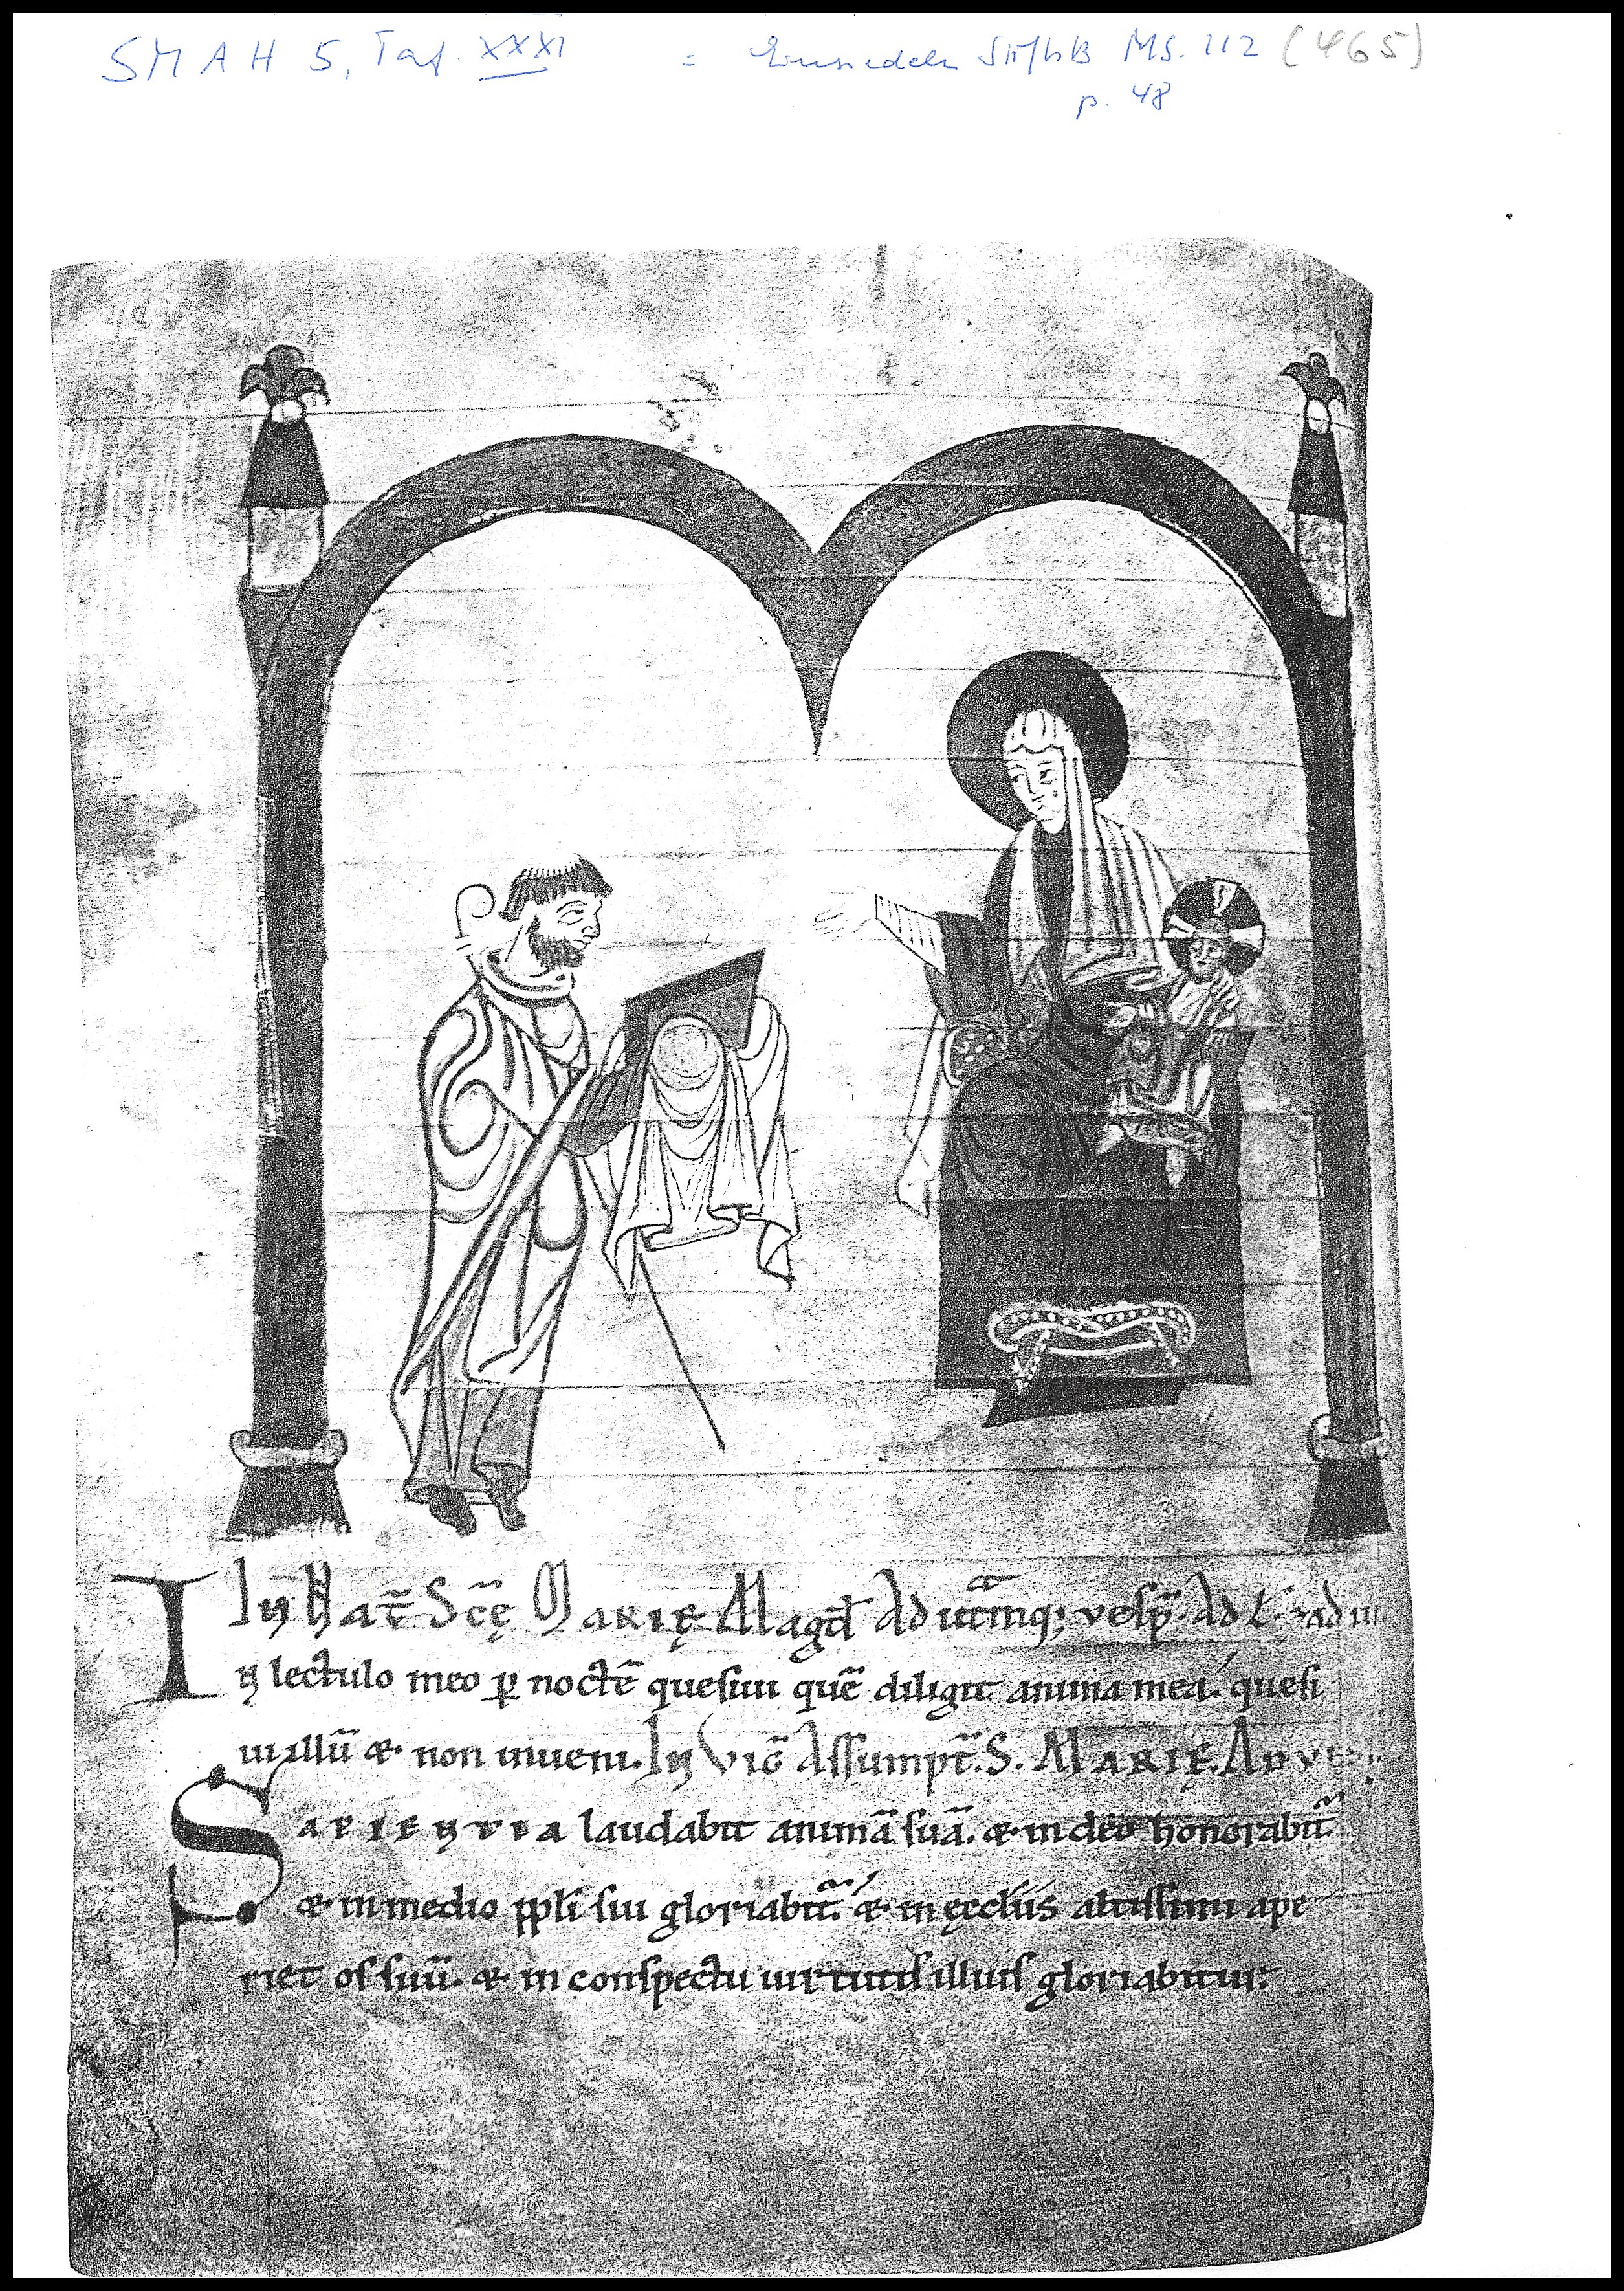 SMAH 5, Taf. XXXI = Einsiedeln StiftsB MS. 112 (465)
p. 48
In Nat̄ S̄cę Marię Magd̄ Ad utrāmq; vesp̄. Ad L. ⁊ad
IN lectulo meo ꝑ noctē quesiui quē diligit anima mea. quesi
ui illū & non inueni. In Viḡ Assumpt̄. S. Marię. Ad
SAPIENTIA laudabit animā suā. & in deo honorabit᷑
& in medio ppl̄i sui gloriabit᷑. & in ęccl̄iis altissimi ape
riet os suū. & in conspectu uirtutis illius gloriabitur.